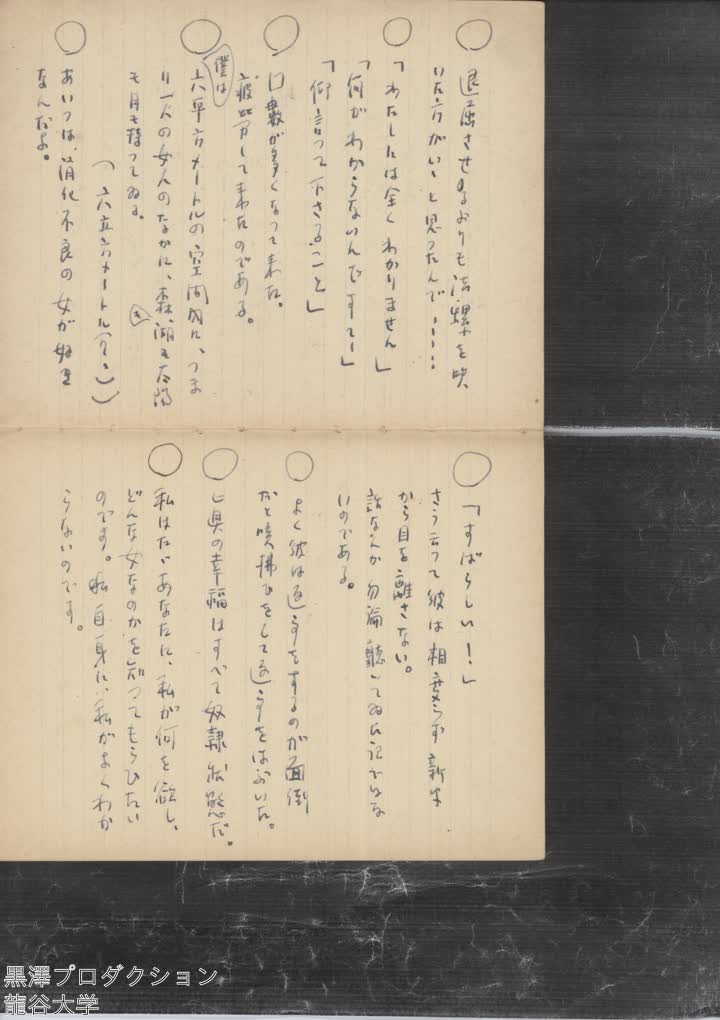 退屈させるよりも法螺を吹
いた方がいゝと思つたんで……
「わたしには全くわかりません」
「何がわからないんですて！」
「仰言つて下さること」
口数が多くなつて来た。
疲労して来たのである。
僕は
六平方メートルの空間内に、つま
り一人の女人のなかに、森も湖も太陽
も月も持つてゐる。
(六立方メートル(?))
あいつは、消化不良の女が好き
なんだよ。
「すばらしい！」
さう云つて彼は相変らず新聞
から目を離さない。
話なんか勿論聴いてゐた訳ではな
いのである。
よく彼は返事をするのが面倒
だと咳払ひをして返事をはぶいた。
真の幸福はすべて奴隷状態だ。
私はたゞあなたに、私が何を欲し、
どんな女なのかを知つてもらひたい
のです。私自身に、私がよくわか
らないのです。
黒澤プロダクション
龍谷大学